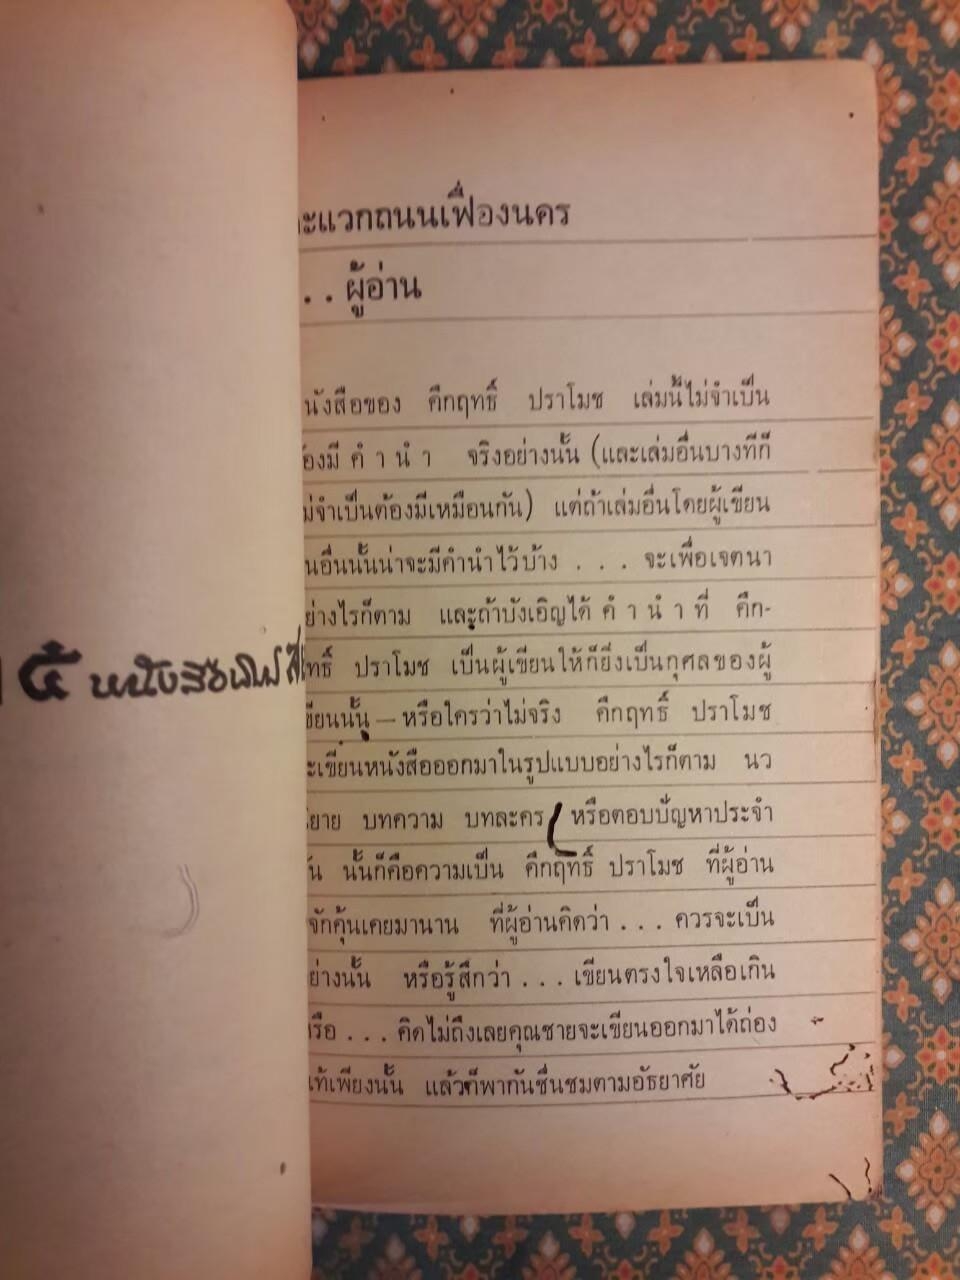 ะแวกถนนเฟื่องนคร
. . ผู้อ่าน
นังสือของ คึกฤทธิ์ ปราโมช เล่มนี้ไม่จำเป็น
องมี คำนำ จริงอย่างนั้น (และเล่มอื่นบางทีก็
ม่จำเป็นต้องมีเหมือนกัน) แต่ถ้าเล่มอื่นโดยผู้เขียน
นอื่นนั้นน่าจะมีคำนำไว้บ้าง . . . จะเพื่อเจตนา
ย่างไรก็ตาม และถ้าบังเอิญได้ คำนำที่ คึก-
ทธิ์ ปราโมช เป็นผู้เขียนให้ก็ยิ่งเป็นกุศลของผู้
เขียนนั้น — หรือใครว่าไม่จริง คึกฤทธิ์ ปราโมช
ะเขียนหนังสือออกมาในรูปแบบอย่างไรก็ตาม นว
ิยาย บทความ บทละคร หรือตอบปัญหาประจำ
ัน นั้นก็คือความเป็น คึกฤทธิ์ ปราโมช ที่ผู้อ่าน
จักคุ้นเคยมานาน ที่ผู้อ่านคิดว่า . . . ควรจะเป็น
ย่างนั้น หรือรู้สึกว่า . . . เขียนตรงใจเหลือเกิน
รือ . . . คิดไม่ถึงเลยคุณชายจะเขียนออกมาได้ถ่อง
ท้เพียงนั้น แล้วก็พากันชื่นชมตามอัธยาศัย
๕ หนังสือ